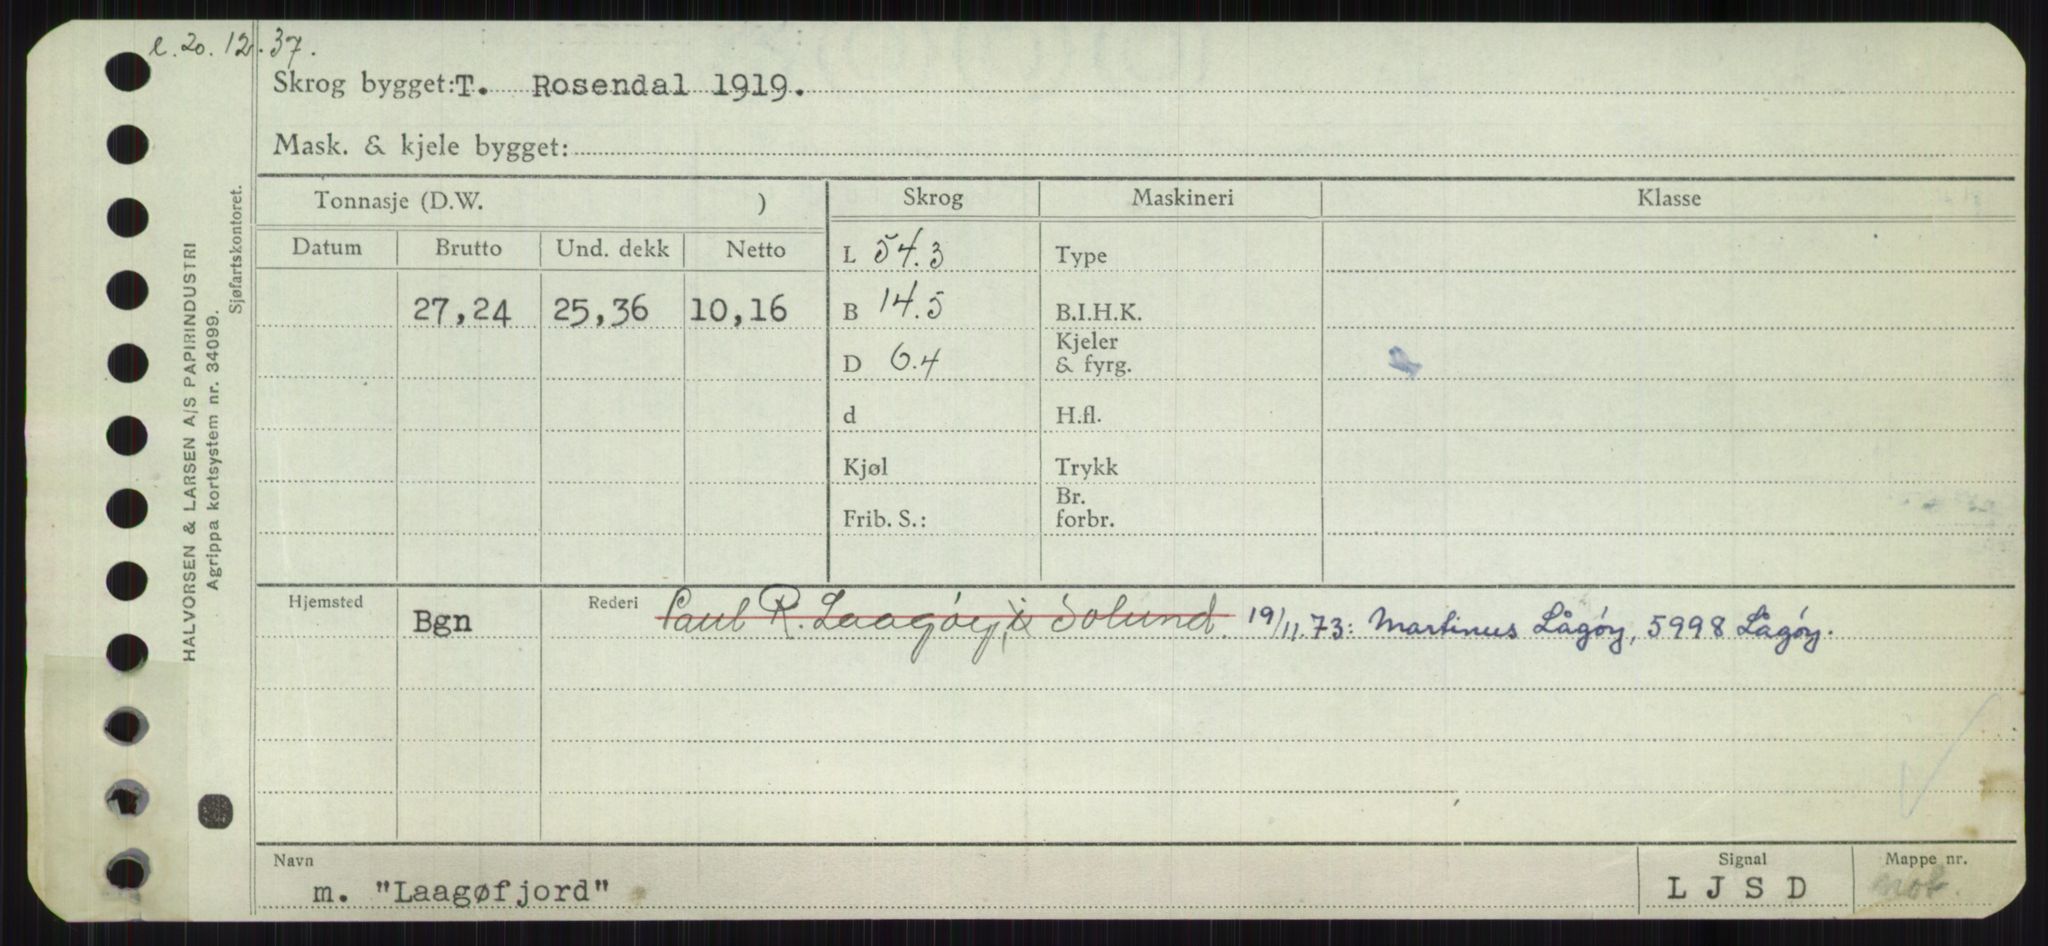 e. 20.12.37.
Skrog bygget: T. Rosendal 1919.
Mask. & kjele bygget:
HALVORSEN & LARSEN A/S PAPIRINDUSTRI
Agrippa kortsystem nr. 34099.
Sjøfartskontoret.
Tonnasje (D.W. ) Skrog Maskineri Klasse
Datum Brutto Und. dekk Netto L 54.3 Type
27,24 25,36 10,16 B 14.5 B.I.H.K.
D 6.4 Kjeler & fyrg.
d H.fl.
Kjøl Trykk
Frib. S.: Br. forbr.
Hjemsted Bgn Rederi Paul R. Laagøy, Solund. 19/11.73: Martinus Lågøy, 5998 Lågøy.
Navn Signal Mappe nr.
m. "Laagøfjord" L J S D not.